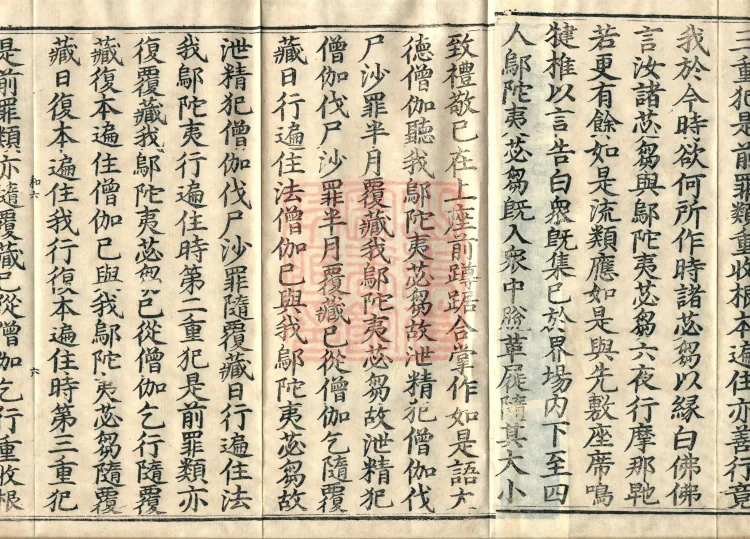 三重犯是前罪類重收根本遍住亦善行竟
我於今時欲何所作時諸苾芻以緣白佛佛
言汝諸苾芻與鄔陀夷苾芻六夜行摩那
若更有餘如是流類應如是與先敷座席鳴
揵椎以言告白衆既集已於界場内下至四
人鄔陀夷苾芻既入衆中脫革屣隨其大小
致禮敬已在上座前蹲踞合掌作如是語大
德僧伽聽我鄔陀夷苾芻故泄精犯僧伽伐
尸沙罪半月覆藏我鄔陀夷苾芻故泄精犯
僧伽伐尸沙罪半月覆藏已從僧伽乞隨覆
藏日行遍住法僧伽已與我鄔陀夷苾芻故
泄精犯僧伽伐尸沙罪隨覆藏日行遍住法
我鄔陀夷行遍住時第二重犯是前罪類亦
復覆藏我鄔陀夷苾芻已從僧伽乞行隨覆
藏復本遍住僧伽已與我鄔陀夷苾芻隨覆
藏日復本遍住我行復本遍住時第三重犯
和六 六
是前罪類亦隨覆藏已從僧伽乞行重收根